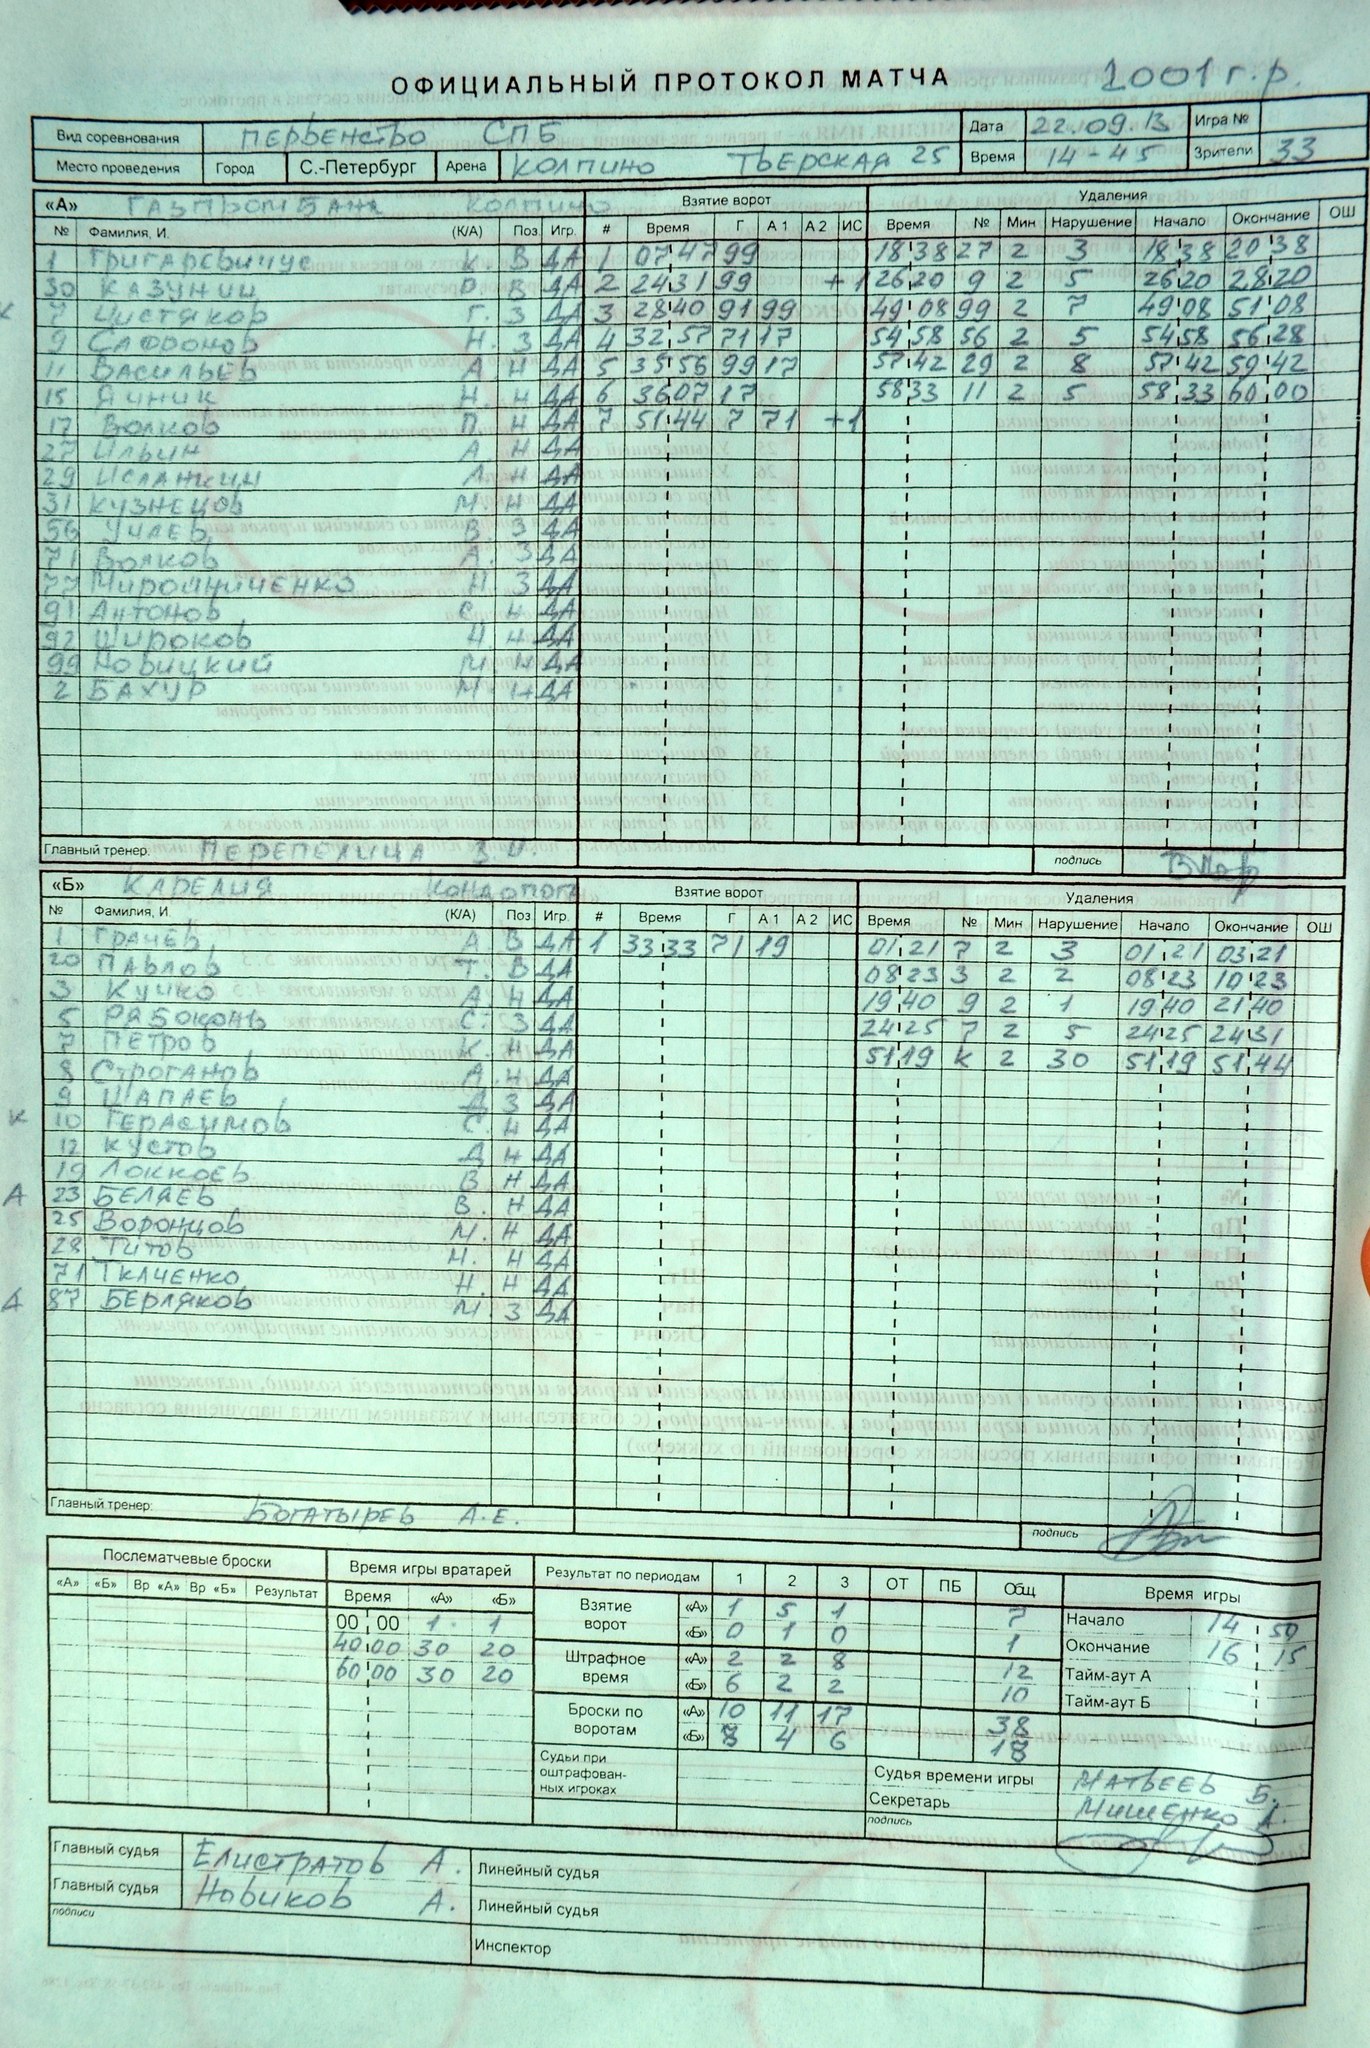 ОФИЦИАЛЬНЫЙ ПРОТОКОЛ МАТЧА 2001 г.р.
Вид соревнования ПЕРВЕНСТВО СПБ Дата 22.09.13 Игра №
Место проведения Город С.-Петербург Арена КОЛПИНО ТВЕРСКАЯ 25 Время 14-45 Зрители 33
«А» ГАЗПРОМБАНК КОЛПИНО Взятие ворот Удаления
№ Фамилия, И. (К/А) Поз. Игр. # Время Г А 1 А 2 ИС Время № Мин Нарушение Начало Окончание ОШ
1 ГРИГАРЕВИЧУС К. В ДА 1 07 47 99 18 38 27 2 3 18 38 20 38
30 КАЗУНИН Р В ДА 2 24 31 99 +1 26 20 9 2 5 26 20 28 20
К 7 ЧИСТЯКОВ Г. З ДА 3 28 40 91 99 49 08 99 2 7 49 08 51 08
9 САФРОНОВ Н. З ДА 4 32 57 71 17 54 58 56 2 5 54 58 56 28
11 ВАСИЛЬЕВ А Н ДА 5 35 56 99 17 57 42 29 2 8 57 42 59 42
15 ЯЧНИК Н. Н ДА 6 36 07 17 58 33 11 2 5 58 33 60 00
17 ВОЛКОВ П Н ДА 7 51 44 7 71 +1
27 ИЛЬИН А Н ДА
29 ИСЛАНКИН Л Н ДА
31 КУЗНЕЦОВ М. Н ДА
56 УЧАЕВ В. З ДА
71 ВОЛКОВ А. З ДА
77 МИРОШНИЧЕНКО Н З ДА
91 АНТОНОВ С Н ДА
92 ШИРОКОВ И Н ДА
99 НОВИЦКИЙ М. Н ДА
2 БАХУР М Н ДА
Главный тренер: ПЕРЕПЕХИЦА З.И. подпись
«Б» КАРЕЛИЯ КОНДОПОГА Взятие ворот Удаления
№ Фамилия, И. (К/А) Поз. Игр. # Время Г А 1 А 2 ИС Время № Мин Нарушение Начало Окончание ОШ
1 ГРАЧЕВ А. В ДА 1 33 33 71 19 01 21 7 2 3 01 21 03 21
20 ПАВЛОВ Т. В ДА 08 23 3 2 2 08 23 10 23
3 КУЧКО А Н ДА 19 40 9 2 1 19 40 21 40
5 РЯБОКОНЬ С. З ДА 24 25 7 2 5 24 25 24 31
7 ПЕТРОВ К Н ДА 51 19 К 2 30 51 19 51 44
8 СТРОГАНОВ А. Н ДА
9 ШАПАЕВ Д З ДА
К 10 ГЕРАСИМОВ С. Н ДА
12 КУСТОВ Д Н ДА
19 ЛОККОЕВ В Н ДА
А 23 БЕЛЯЕВ В. Н ДА
25 ВОРОНЦОВ М. Н ДА
28 ТИТОВ Н. Н ДА
71 ТКАЧЕНКО Н. Н ДА
А 87 БЕРЛЯКОВ М. З ДА
Главный тренер: БОГАТЫРЕВ А.Е. подпись
Послематчевые броски Время игры вратарей Результат по периодам 1 2 3 ОТ ПБ Общ Время игры
«А» «Б» Вр «А» Вр «Б» Результат Время «А» «Б»
00 00 1 1 Взятие ворот «А» 1 5 1 7 Начало 14 50
40 00 30 20 «Б» 0 1 0 1 Окончание 16 15
60 00 30 20 Штрафное время «А» 2 2 8 12 Тайм-аут А
«Б» 6 2 2 10 Тайм-аут Б
Броски по воротам «А» 10 11 17 38
«Б» 8 4 6 18
Судьи при оштрафован-ных игроках Судья времени игры МАТВЕЕВ Б.
Секретарь МИШЕНКО А.
подпись
Главный судья ЕЛИСТРАТОВ А. Линейный судья
Главный судья НОВИКОВ А. Линейный судья
подписи
Инспектор